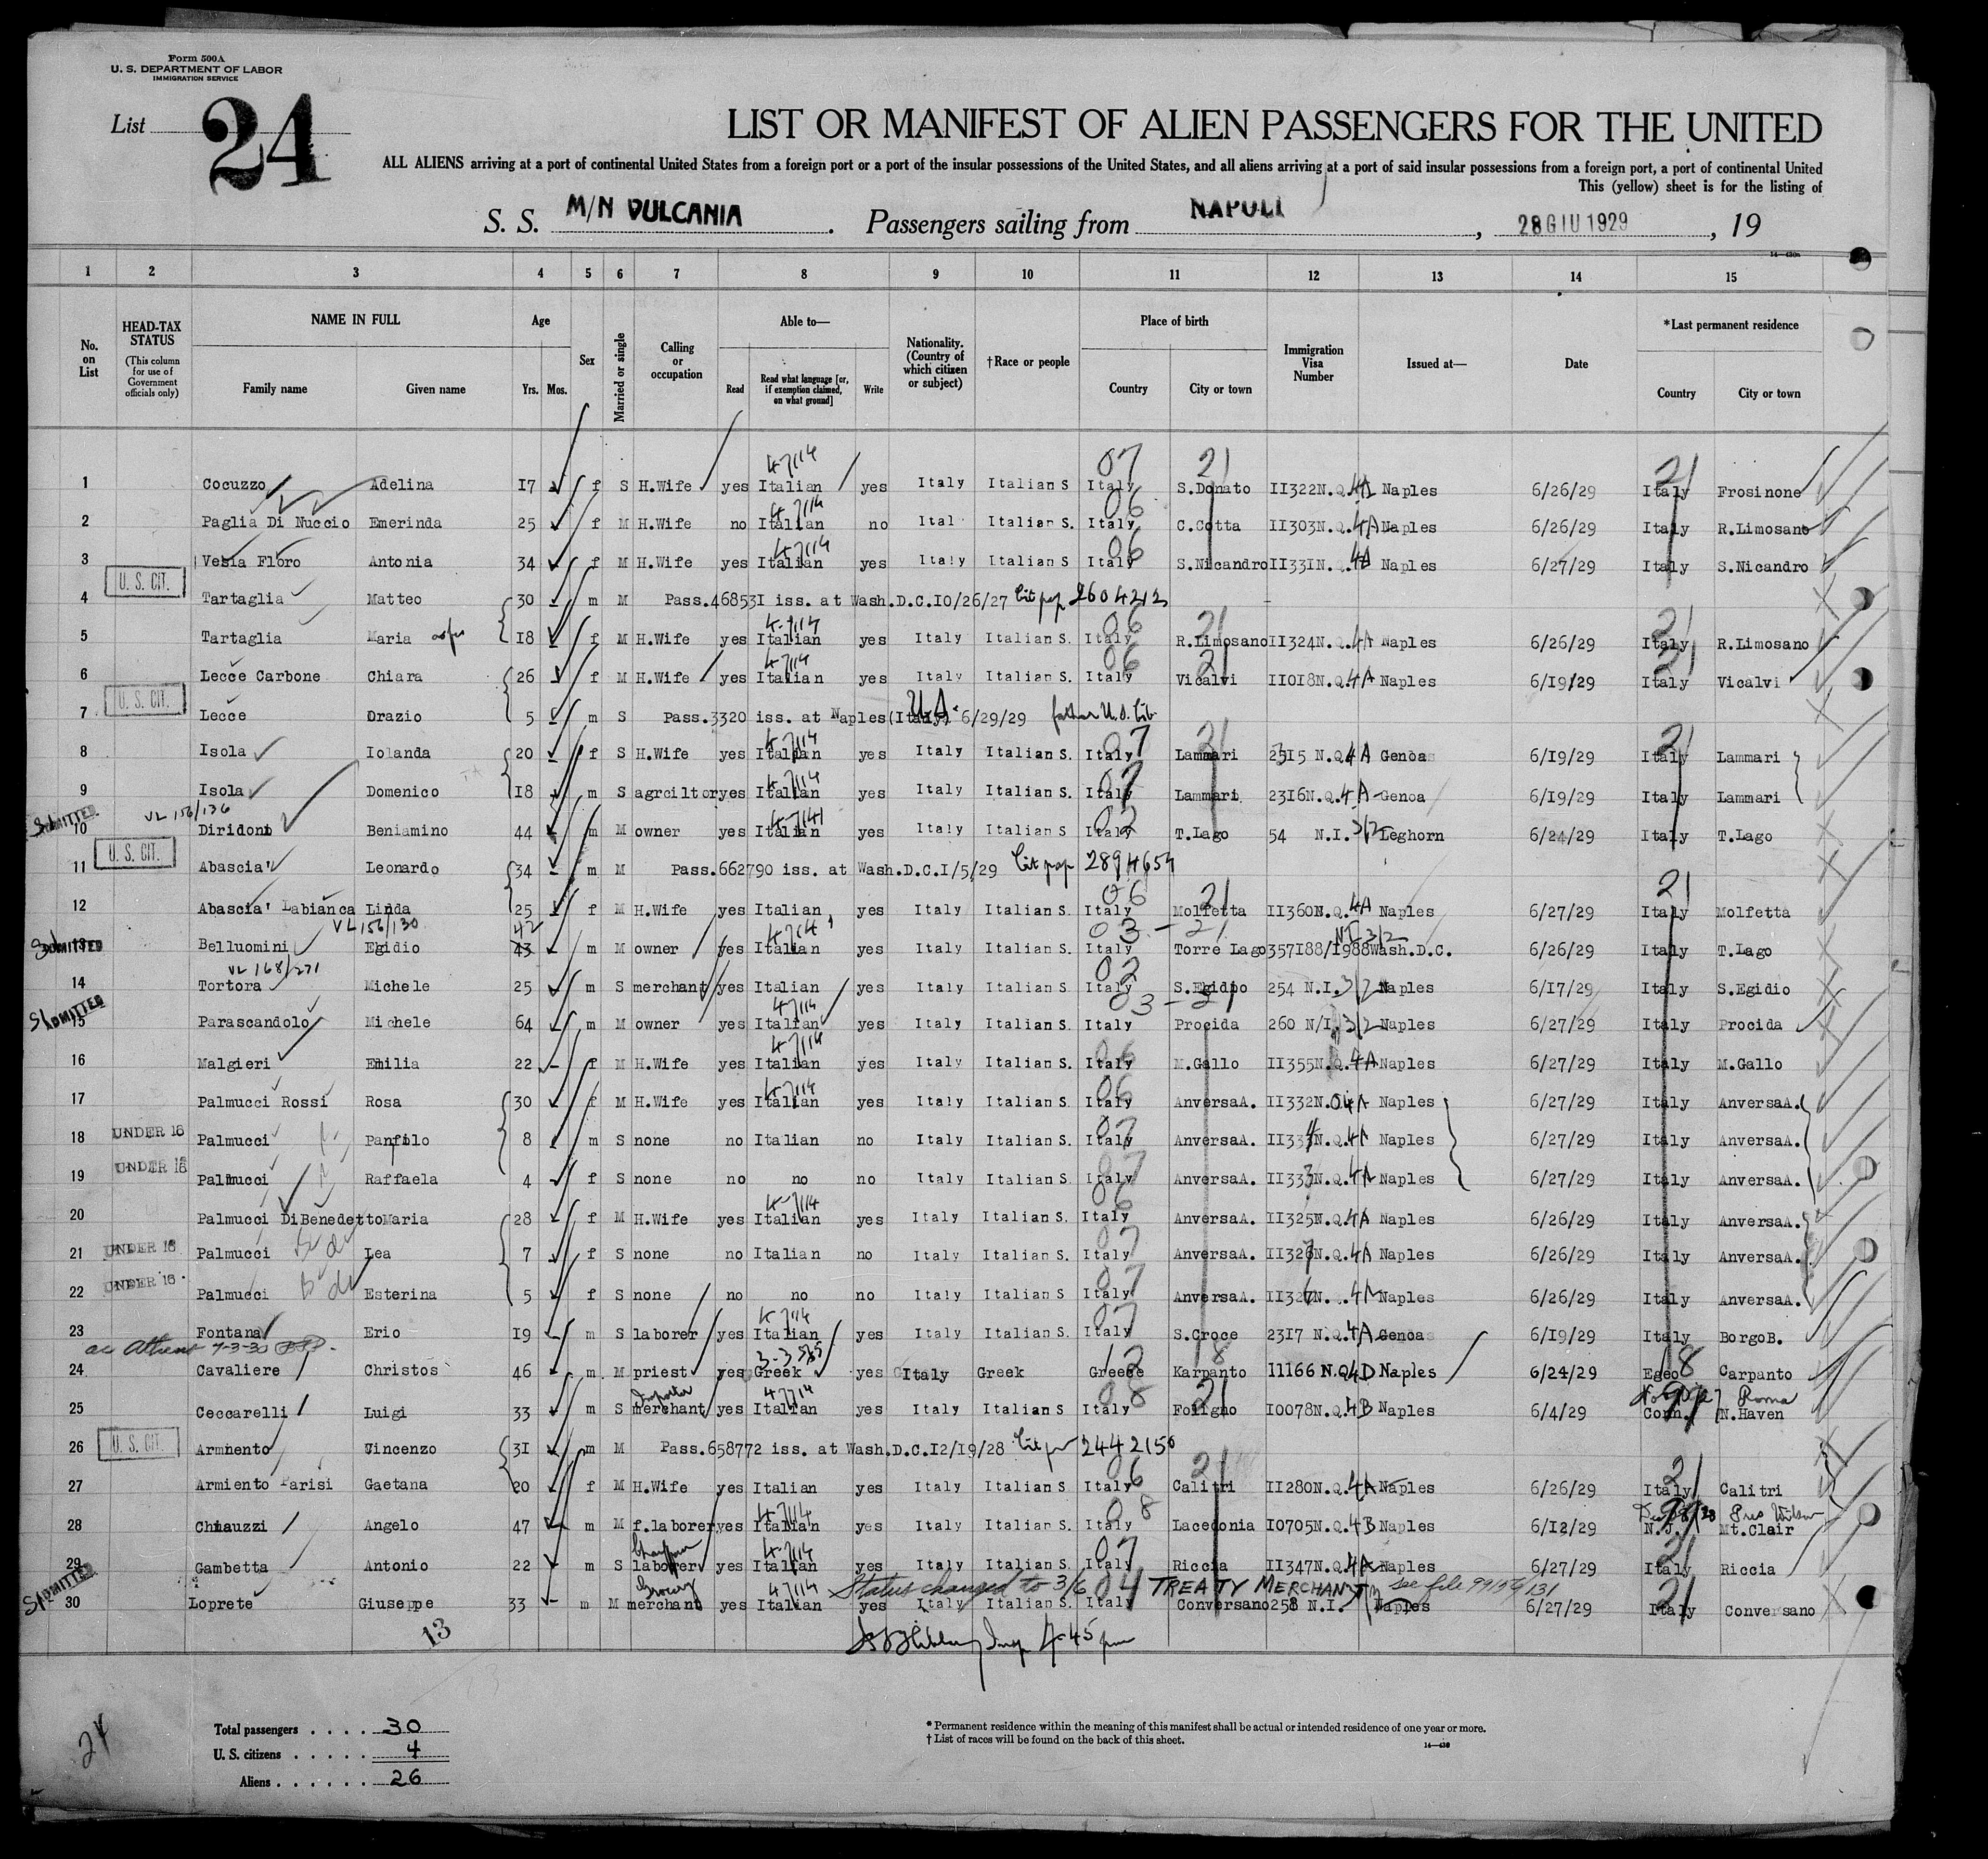 Form 500A
U. S. DEPARTMENT OF LABOR
IMMIGRATION SERVICE
List 24
LIST OR MANIFEST OF ALIEN PASSENGERS FOR THE UNITED
ALL ALIENS arriving at a port of continental United States from a foreign port or a port of the insular possessions of the United States, and all aliens arriving at a port of said insular possessions from a foreign port, a port of continental United
This (yellow) sheet is for the listing of
S. S. M/N VULCANIA. Passengers sailing from NAPOLI, 28 GIU 1929, 19
14-430a
1 2 3 4 5 6 7 8 9 10 11 12 13 14 15
No. on List
HEAD-TAX STATUS (This column for use of Government officials only)
NAME IN FULL
Family name Given name
Age
Yrs. Mos.
Sex
Married or single
Calling or occupation
Able to—
Read Read what language [or, if exemption claimed, on what ground] Write
Nationality. (Country of which citizen or subject)
†Race or people
Place of birth
Country City or town
Immigration Visa Number
Issued at—
Date
*Last permanent residence
Country City or town
1 Cocuzzo Adelina 17 f S H.Wife yes Italian yes Italy Italian S Italy S.Donato II322N.Q.4A Naples 6/26/29 Italy Frosinone
2 Paglia Di Nuccio Emerinda 25 f M H.Wife no Italian no Ital Italian S. Italy C.Cotta II303N.Q.4A Naples 6/26/29 Italy R.Limosano
3 Vesia Floro Antonia 34 f M H.Wife yes Italian yes Italy Italian S Italy S.Nicandro II331N.Q.4A Naples 6/27/29 Italy S.Nicandro
U. S. CIT.
4 Tartaglia Matteo 30 m M Pass.468531 iss. at Wash.D.C.10/26/27 2604212
5 Tartaglia Maria 18 f M H.Wife yes Italian yes Italy Italian S. Italy R.Limosano II324N.Q.4A Naples 6/26/29 Italy R.Limosano
6 Lecce Carbone Chiara 26 f M H.Wife yes Italian yes Italy Italian S. Italy Vicalvi II018N.Q.4A Naples 6/19/29 Italy Vicalvi
U. S. CIT.
7 Lecce Orazio 5 m S Pass.3320 iss. at Naples(Italy) 6/29/29 father U.S. Cit.
8 Isola Iolanda 20 f S H.Wife yes Italian yes Italy Italian S. Italy Lammari 2315 N.Q.4A Genoa 6/19/29 Italy Lammari
9 Isola Domenico 18 m S agrciltor yes Italian yes Italy Italian S. Italy Lammari 2316N.Q.4A Genoa 6/19/29 Italy Lammari
ADMITTED VL 156/136
10 Diridoni Beniamino 44 m M owner yes Italian yes Italy Italian S Italy T.Lago 54 N.I. 3/2 Leghorn 6/24/29 Italy T.Lago
U. S. CIT.
11 Abascia' Leonardo 34 m M Pass.662790 iss. at Wash.D.C.I/5/29 2894654
12 Abascia' Labianca Linda 25 f M H.Wife yes Italian yes Italy Italian S. Italy Molfetta II360N.Q.4A Naples 6/27/29 Italy Molfetta
VL 156/130 42 NI 3/2
ADMITTED
13 Belluomini Egidio 43 m M owner yes Italian yes Italy Italian S. Italy Torre Lago 357188/1988 Wash.D.C. 6/26/29 Italy T.Lago
VL 168/271
14 Tortora Michele 25 m S merchant yes Italian yes Italy Italian S. Italy S.Egidio 254 N.I. 3/2 Naples 6/17/29 Italy S.Egidio
ADMITTED
15 Parascandolo Michele 64 m M owner yes Italian yes Italy Italian S. Italy Procida 260 N/I. 3/2 Naples 6/27/29 Italy Procida
16 Malgieri Emilia 22 f M H.Wife yes Italian yes Italy Italian S. Italy M.Gallo II355N.Q.4A Naples 6/27/29 Italy M.Gallo
17 Palmucci Rossi Rosa 30 f M H.Wife yes Italian yes Italy Italian S. Italy AnversaA. II332N.Q4A Naples 6/27/29 Italy AnversaA.
18 UNDER 16 Palmucci Panfilo 8 m S none no Italian no Italy Italian S. Italy AnversaA. II334N.Q.4A Naples 6/27/29 Italy AnversaA.
19 UNDER 16 Palmucci Raffaela 4 f S none no no no Italy Italian S. Italy AnversaA. II333N.Q.4A Naples 6/27/29 Italy AnversaA.
20 Palmucci DiBenedetto Maria 28 f M H.Wife yes Italian yes Italy Italian S. Italy AnversaA. II325N.Q.4A Naples 6/26/29 Italy AnversaA.
21 UNDER 16 Palmucci Lea 7 f S none no Italian no Italy Italian S. Italy AnversaA. II327N.Q.4A Naples 6/26/29 Italy AnversaA.
22 UNDER 16 Palmucci Esterina 5 f S none no no no Italy Italian S Italy AnversaA. II326N. .4A Naples 6/26/29 Italy AnversaA.
23 Fontana Erio 19 m S laborer yes Italian yes Italy Italian S. Italy S.Croce 2317 N.Q.4A Genoa 6/19/29 Italy BorgoB.
24 Cavaliere Christos 46 m M priest yes Greek yes Italy Greek Greece Karpanto 11166 N.Q4D Naples 6/24/29 Egeo Carpanto
Importer Roma
25 Ceccarelli Luigi 33 m S merchant yes Italian yes Italy Italian S Italy Foligno I0078N.Q.4B Naples 6/4/29 Conn. N.Haven
U. S. CIT.
26 Armiento Vincenzo 31 m M Pass.658772 iss. at Wash.D.C.I2/19/28 2442150
27 Armiento Parisi Gaetana 20 f M H.Wife yes Italian yes Italy Italian S. Italy Calitri II280N.Q.4A Naples 6/26/29 Italy Calitri
Pres Wilson
28 Chiauzzi Angelo 47 m M f.laborer yes Italian yes Italy Italian S. Italy Lacedonia I0705N.Q.4B Naples 6/12/29 N.J. Mt.Clair
29 Gambetta Antonio 22 m S laborer yes Italian yes Italy Italian S. Italy Riccia II347N.Q.4A Naples 6/27/29 Italy Riccia
ADMITTED Grocery Status changed to 3/6 04 TREATY MERCHANT see file 99156/131
30 Loprete Giuseppe 33 m M merchant yes Italian yes Italy Italian S. Italy Conversano 258 N.I. Naples 6/27/29 Italy Conversano
13
4-45 pm
24
Total passengers . . . . 30
U. S. citizens . . . . . 4
Aliens . . . . . . 26
* Permanent residence within the meaning of this manifest shall be actual or intended residence of one year or more.
† List of races will be found on the back of this sheet.
14-430